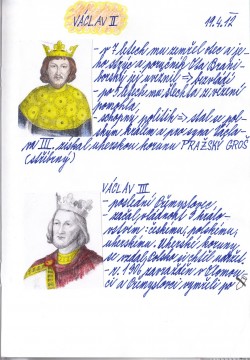 VÁCLAV II
11.4.12
- v 7 letech mu zemřel otec a je-
ho strýc a poručník Ota Brani-
borský jej věznil => bezvládí
- po 5 letech mu šlechta z vězení
pomohla
- schopný politik => stal se pol-
ským králem a pro syna Václa-
va III. získal uherskou korunu PRAŽSKÝ GROŠ
(stříbrný)
VÁCLAV III
- poslední Přemyslovec,
- začal vládnout 3 králo-
vstvím: českému, polskému,
uherskému. Uherské koruny
se vzdal, Polsko si chtěl udržet.
- r. 1306 zavražděn v Olomou-
ci a Přemyslovci vymřeli po